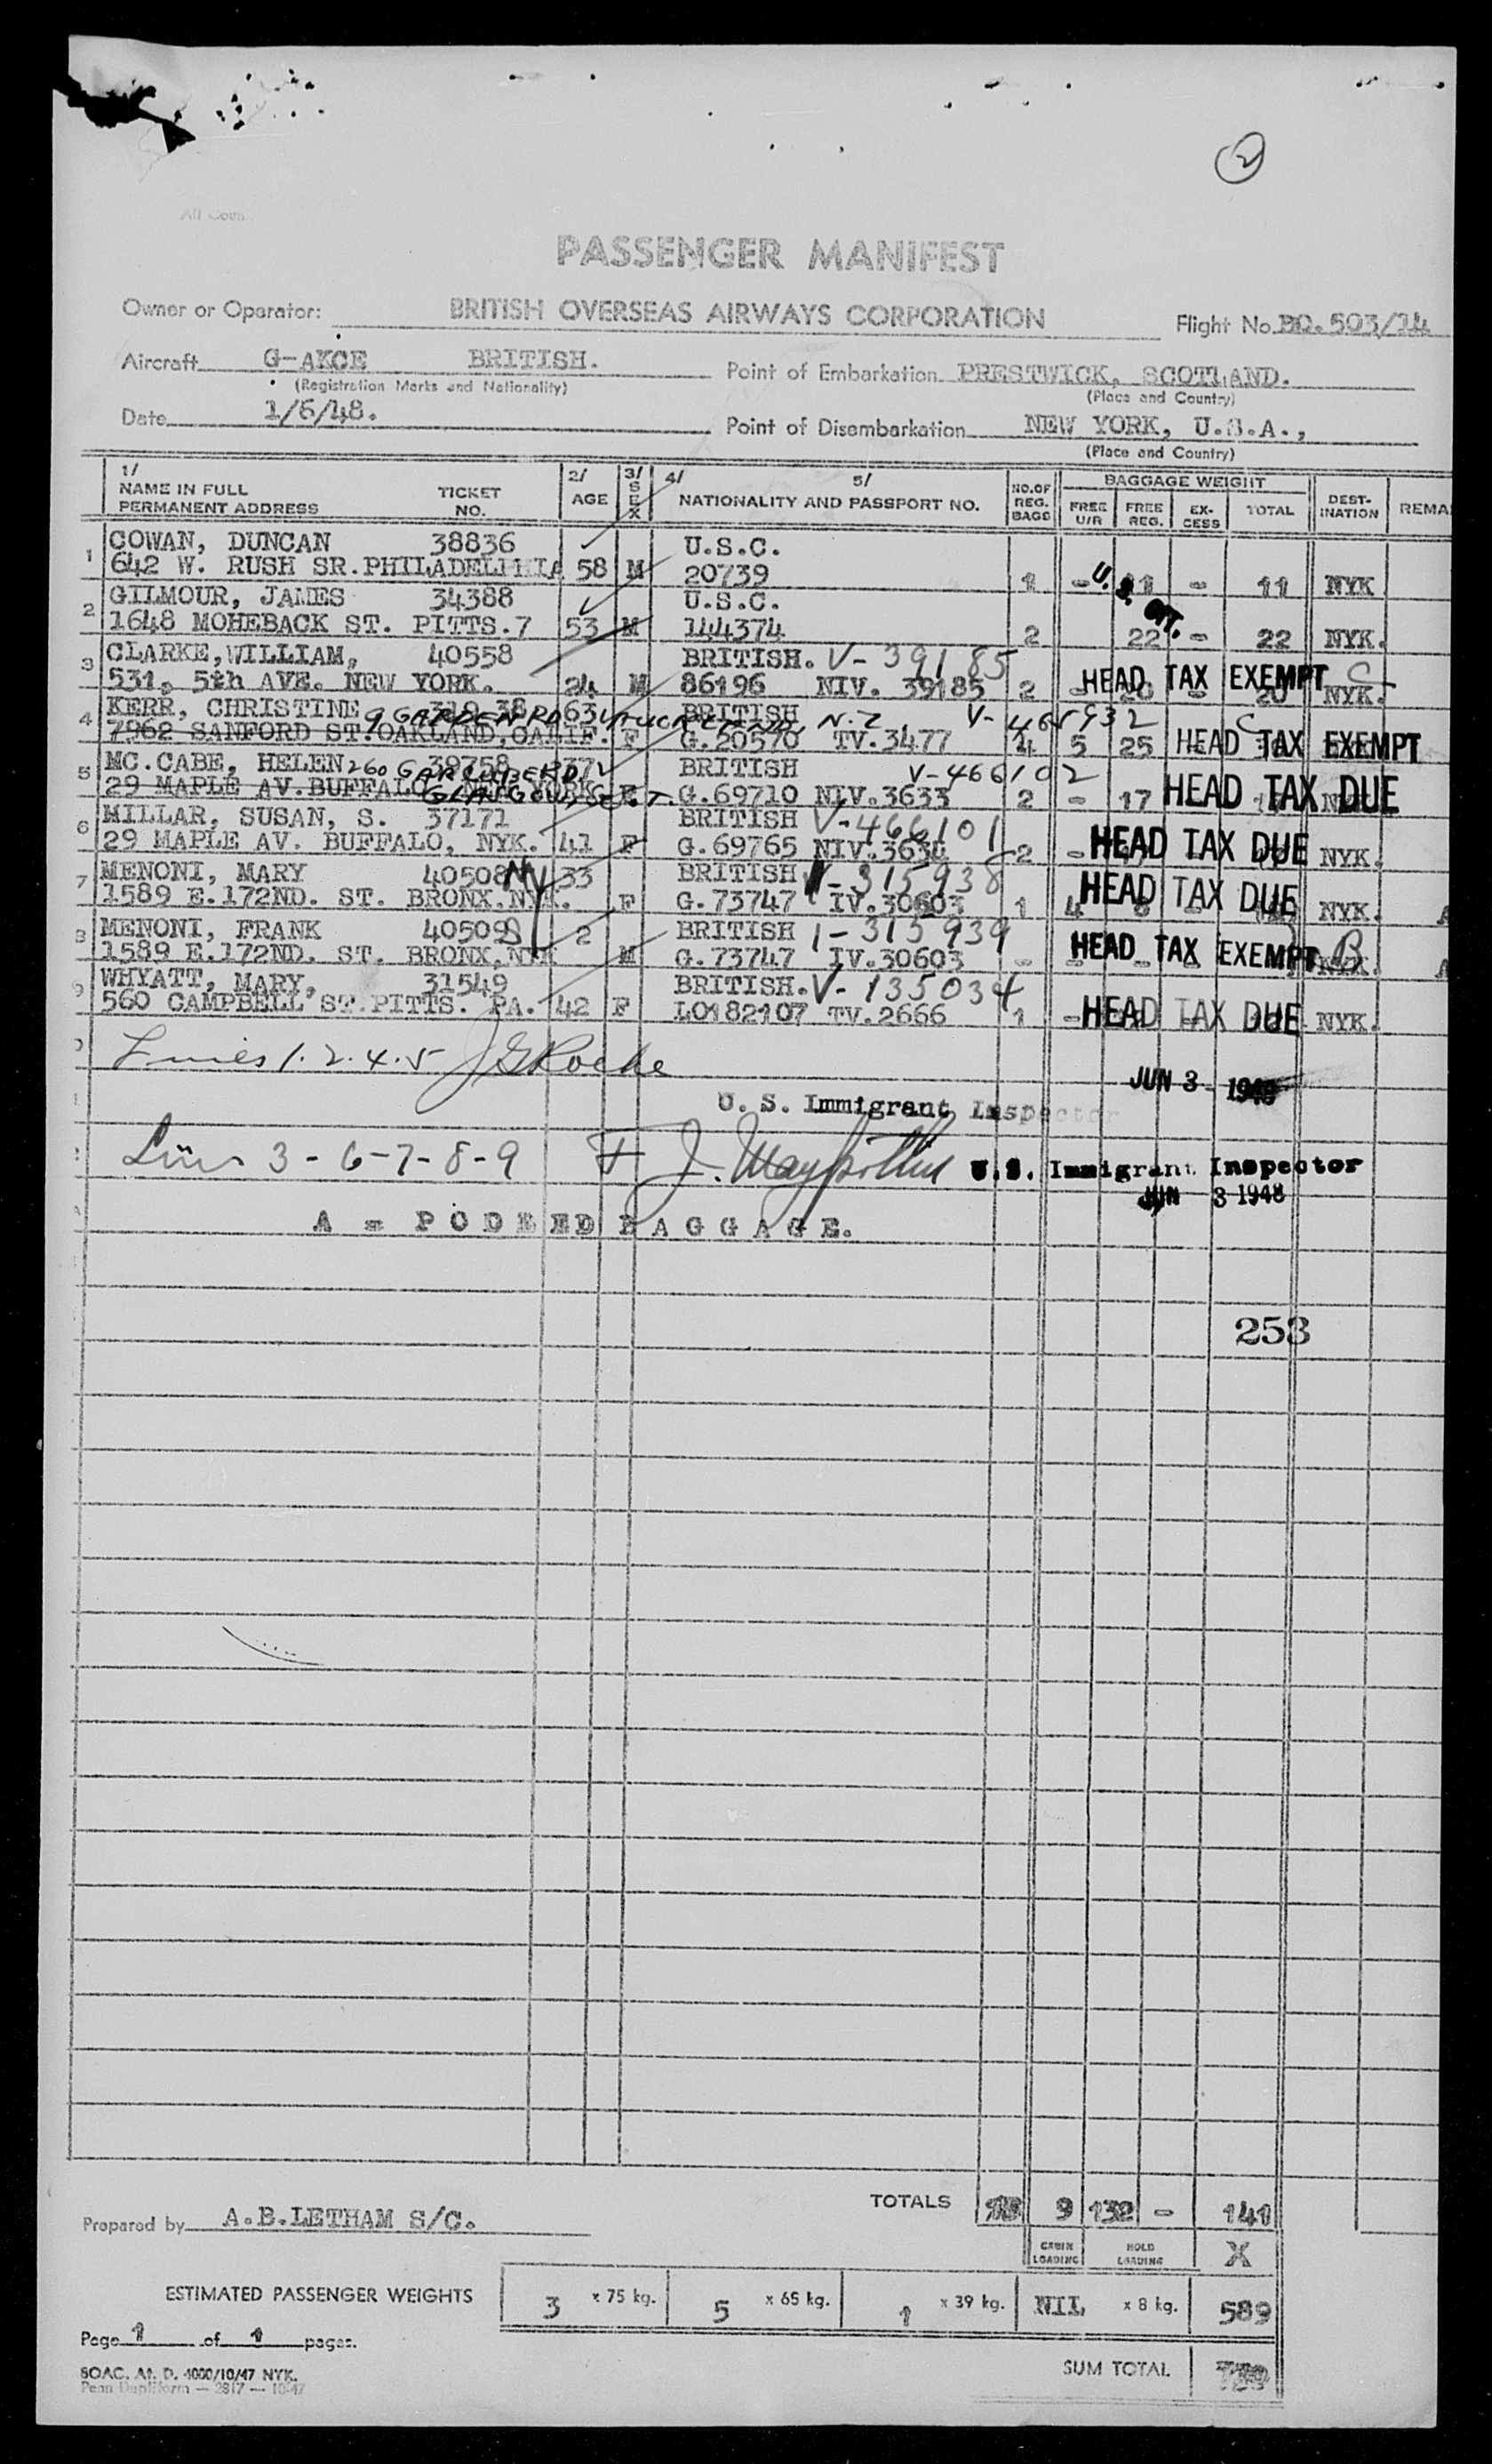 2
PASSENGER MANIFEST
Owner or Operator: BRITISH OVERSEAS AIRWAYS CORPORATION Flight No. BO. 503/14
Aircraft G-AKCE BRITISH. Point of Embarkation PRESTWICK, SCOTLAND.
(Registration Marks and Nationality) (Place and Country)
Date 1/6/48. Point of Disembarkation NEW YORK, U.S.A.,
(Place and Country)
1/ 2/ 3/ 4/ 5/
NAME IN FULL TICKET AGE SEX NATIONALITY AND PASSPORT NO. NO. OF REG. BAGS BAGGAGE WEIGHT DEST-INATION REMA
PERMANENT ADDRESS NO. FREE U/R FREE REG. EX-CESS TOTAL
COWAN, DUNCAN 38836 U.S.C.
1 642 W. RUSH SR. PHILADELPHIA 58 M 20739 1 - 11 - 11 NYK
U.S. CIT.
GILMOUR, JAMES 34388 U.S.C.
2 1648 MOHEBACK ST. PITTS.7 53 M 144374 2 22 - 22 NYK.
CLARKE, WILLIAM, 40558 BRITISH. V-39185
3 531, 5th AVE. NEW YORK. 24 M 86196 NIV. 39185 2 - 20 - 20 NYK.
HEAD TAX EXEMPT C
KERR, CHRISTINE 9 GARDEN RD 63 BRITISH N.Z V-465932
4 7962 SANFORD ST. OAKLAND, CALIF. F G.20570 TV.3477 4 5 25 HEAD TAX EXEMPT
C
MC.CABE, HELEN 260 GARSCUBE RD 39758 37 BRITISH V-466102
5 29 MAPLE AV. BUFFALO, NEW YORK F G.69710 NIV.3633 2 - 17 HEAD TAX DUE
GLASGOW, SCOT.
MILLAR, SUSAN, S. 37171 BRITISH V-466101
6 29 MAPLE AV. BUFFALO, NYK. 41 F G.69765 2 - HEAD TAX DUE NYK.
MENONI, MARY 40508 NY 33 BRITISH V-315938
7 1589 E.172ND. ST. BRONX, NYK. F G.73747 IV.30603 1 4 HEAD TAX DUE NYK. A
MENONI, FRANK 40509 2 BRITISH 1-315939
8 1589 E.172ND. ST. BRONX, NYK M G.73747 IV.30603 - - HEAD TAX EXEMPT B NYK. A
WHYATT, MARY, 31549 BRITISH. V-135034
9 560 CAMPBELL ST. PITTS. PA. 42 F LO182107 TV.2666 1 - HEAD TAX DUE NYK.
Lines 1.2.4.5 J G Roche
JUN 3 - 1948
U. S. Immigrant Inspector
Lines 3-6-7-8-9 U.S. Immigrant Inspector
JUN 3 1948
A = PODEED BAGGAGE.
253
TOTALS 13 9 132 - 141
Prepared by A.B.LETHAM S/C.
CABIN LOADING HOLD LOADING X
ESTIMATED PASSENGER WEIGHTS 3 x 75 kg. 5 x 65 kg. 1 x 39 kg. NIL x 8 kg. 589
Page 1 of 1 pages.
SUM TOTAL
BOAC. At. D. 4000/10/47 NYK.
Penn Dupliform — 2817 — 10-47